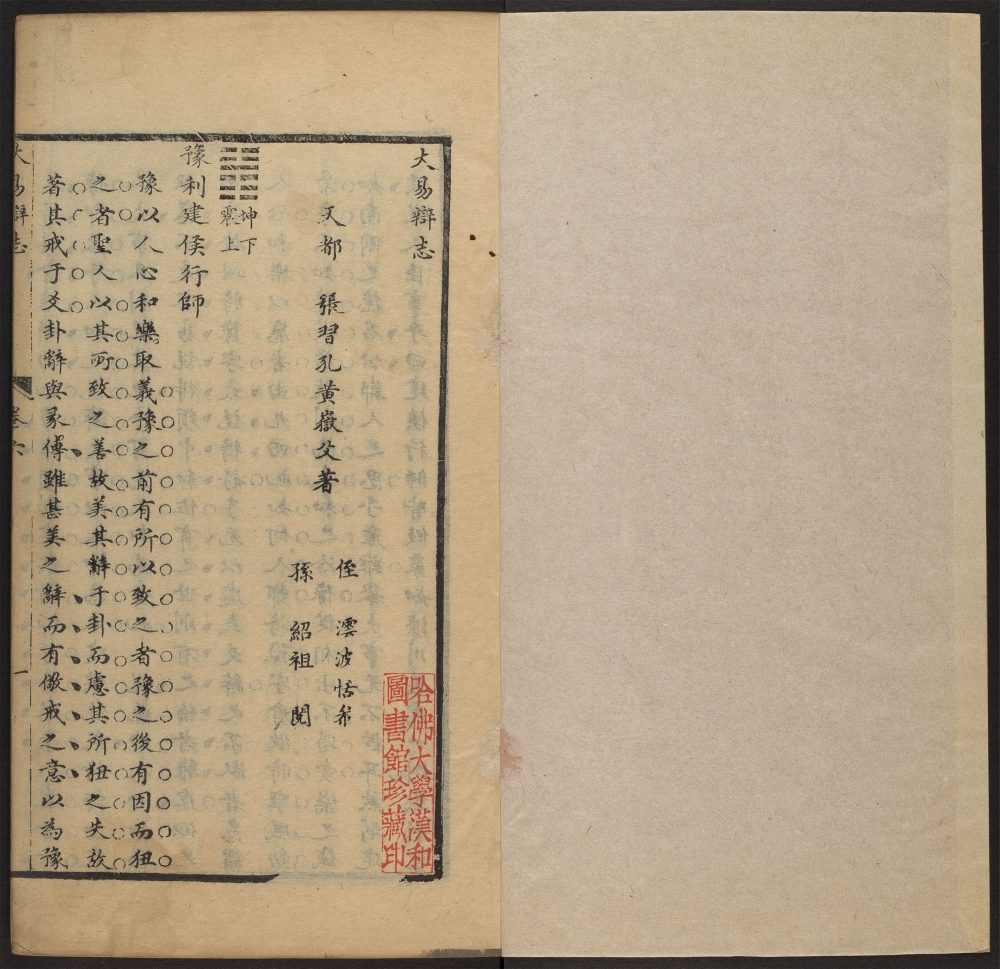 大易辯志
天都 張習孔黄嶽父著
侄 澐波恬㒷
孫 紹祖 閱
坤下
震上
豫利建侯行師
豫以人心和樂取義豫之前有所以致之者豫之後有因而狃
之者聖人以其所致之善故美其辭于卦而慮其所狃之失故
著其戒于爻卦辭與彖傳雖甚美之辭而有儆戒之意以為豫
大易辯志
卷六
一
哈佛大學漢和
圖書館珍藏印